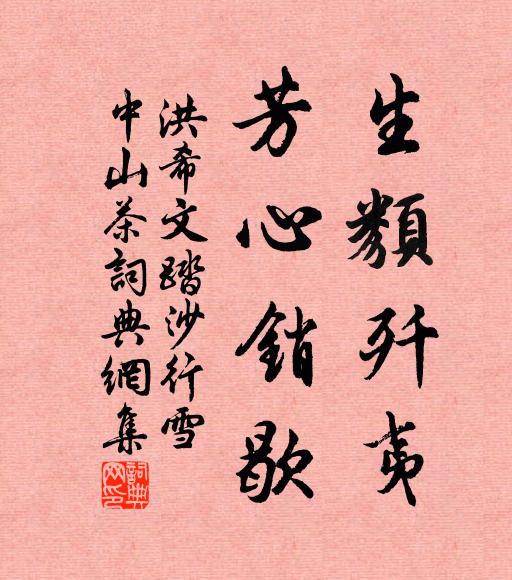 生類歼夷
芳心銷歇
洪希文踏沙行雪
中山茶詞典網集
詞典网印